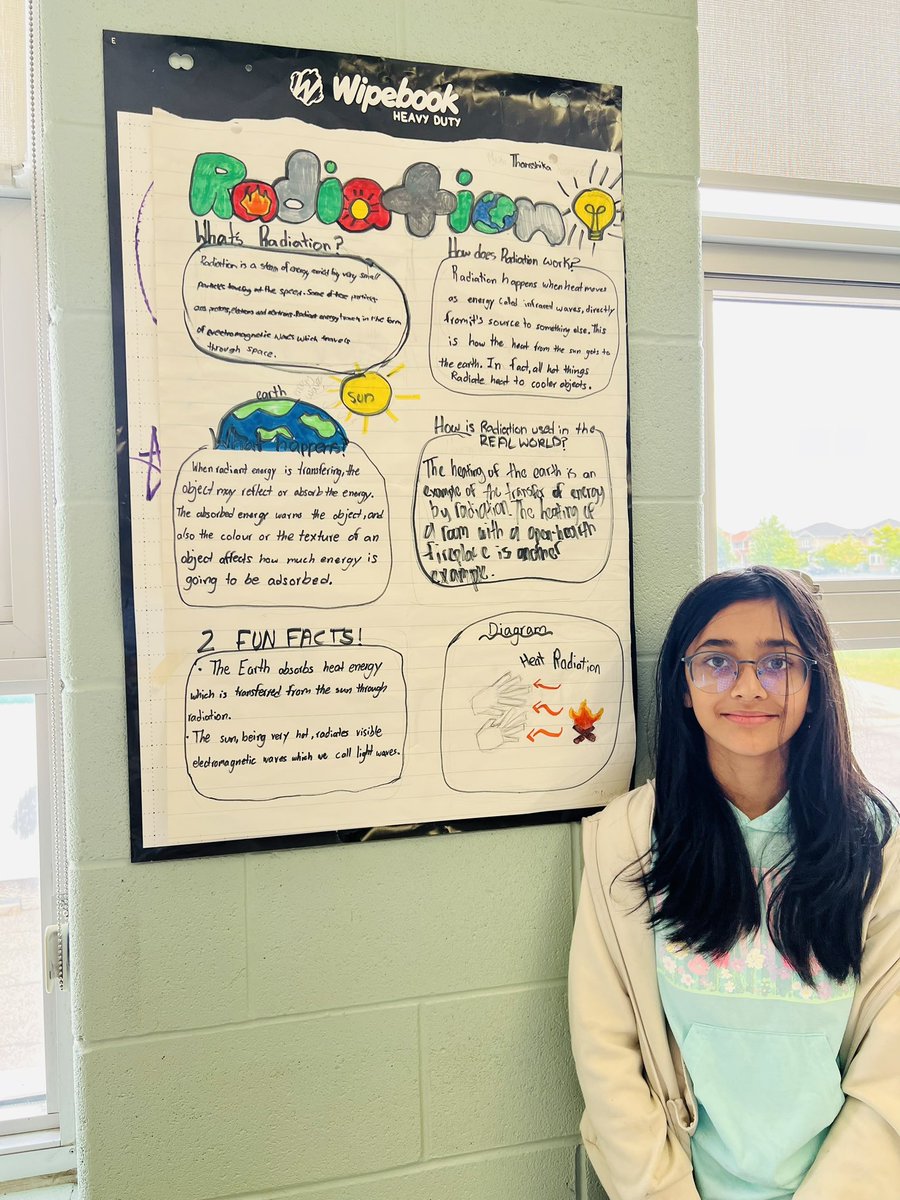 Wipebook
HEAVY DUTY
Thanshika
Radiation
What's Radiation?
Radiation is a of energy by very small
particles at the speed. Some of these particles
are protons, and neutrons. Radiant energy travels in the form
of electromagnetic waves which travels
through space.
How does Radiation work?
Radiation happens when heat moves
as energy called infrared waves, directly
from it's source to something else. This
is how the heat from the sun gets to
the earth. In fact, all hot things
Radiate heat to cooler objects.
earth
sun
What happens?
When radiant energy is transfering, the
object may reflect or absorb the energy.
The absorbed energy warms the object, and
also the colour or the texture of an
object affects how much energy is
going to be adsorbed.
How is Radiation used in the
REAL WORLD?
The heating of the earth is an
example of the transfer of energy
by radiation. The heating of
a room with a open-hearth
fireplace is another
example.
2 FUN FACTS!
• The Earth absorbs heat energy
which is transferred from the sun through
radiation.
• The sun, being very hot, radiates visible
electromagnetic waves which we call light waves.
Diagram
Heat Radiation